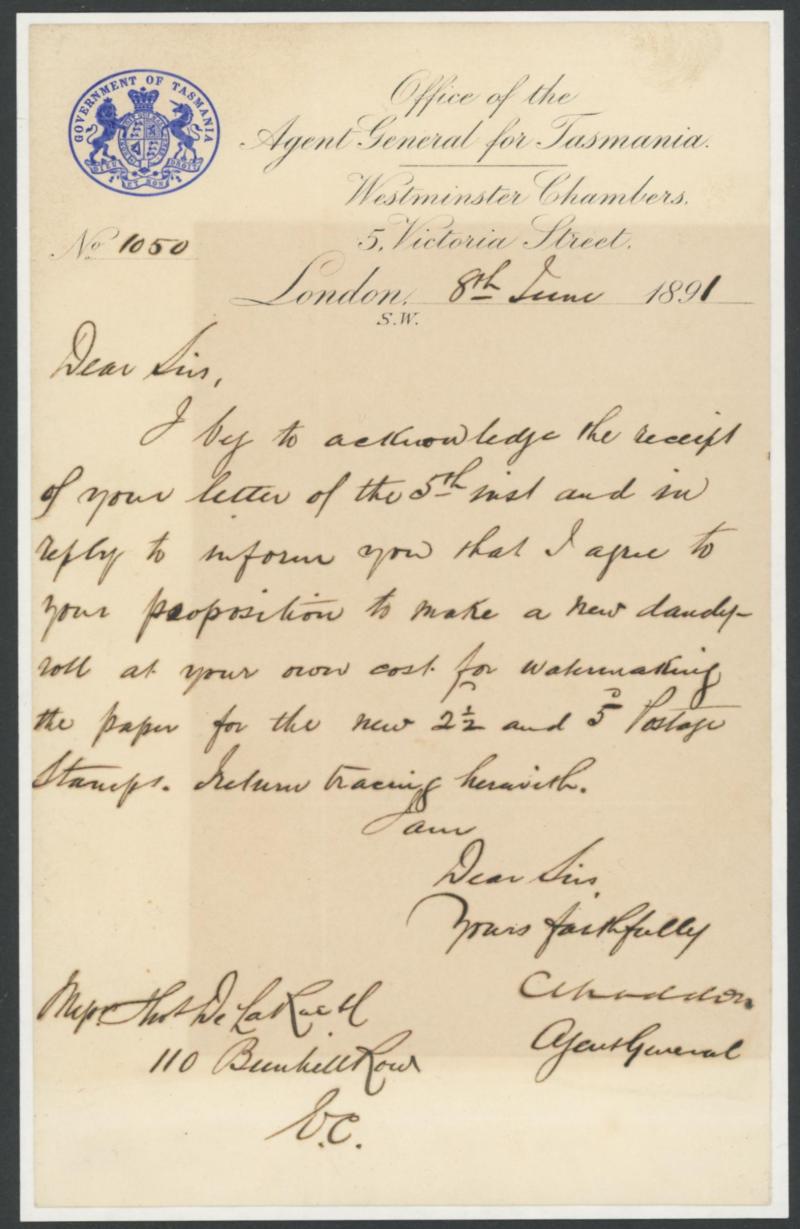 GOVERNMENT OF TASMANIA
Office of the
Agent General for Tasmania.
Westminster Chambers,
5, Victoria Street.
No 1050
London, 8th June 1891
S.W.
Dear Sirs,
I beg to acknowledge the receipt
of your letter of the 5th inst and in
reply to inform you that I agree to
your proposition to make a new dandy-
roll at your own cost for watermaking
the paper for the new 2½ᴰ and 5ᴰ Postage
Stamps. I return tracing herewith.
I am
Dear Sirs,
Yours faithfully
Agent General
Messrs Thos De La Rue &
110 Bunhill Row
E.C.